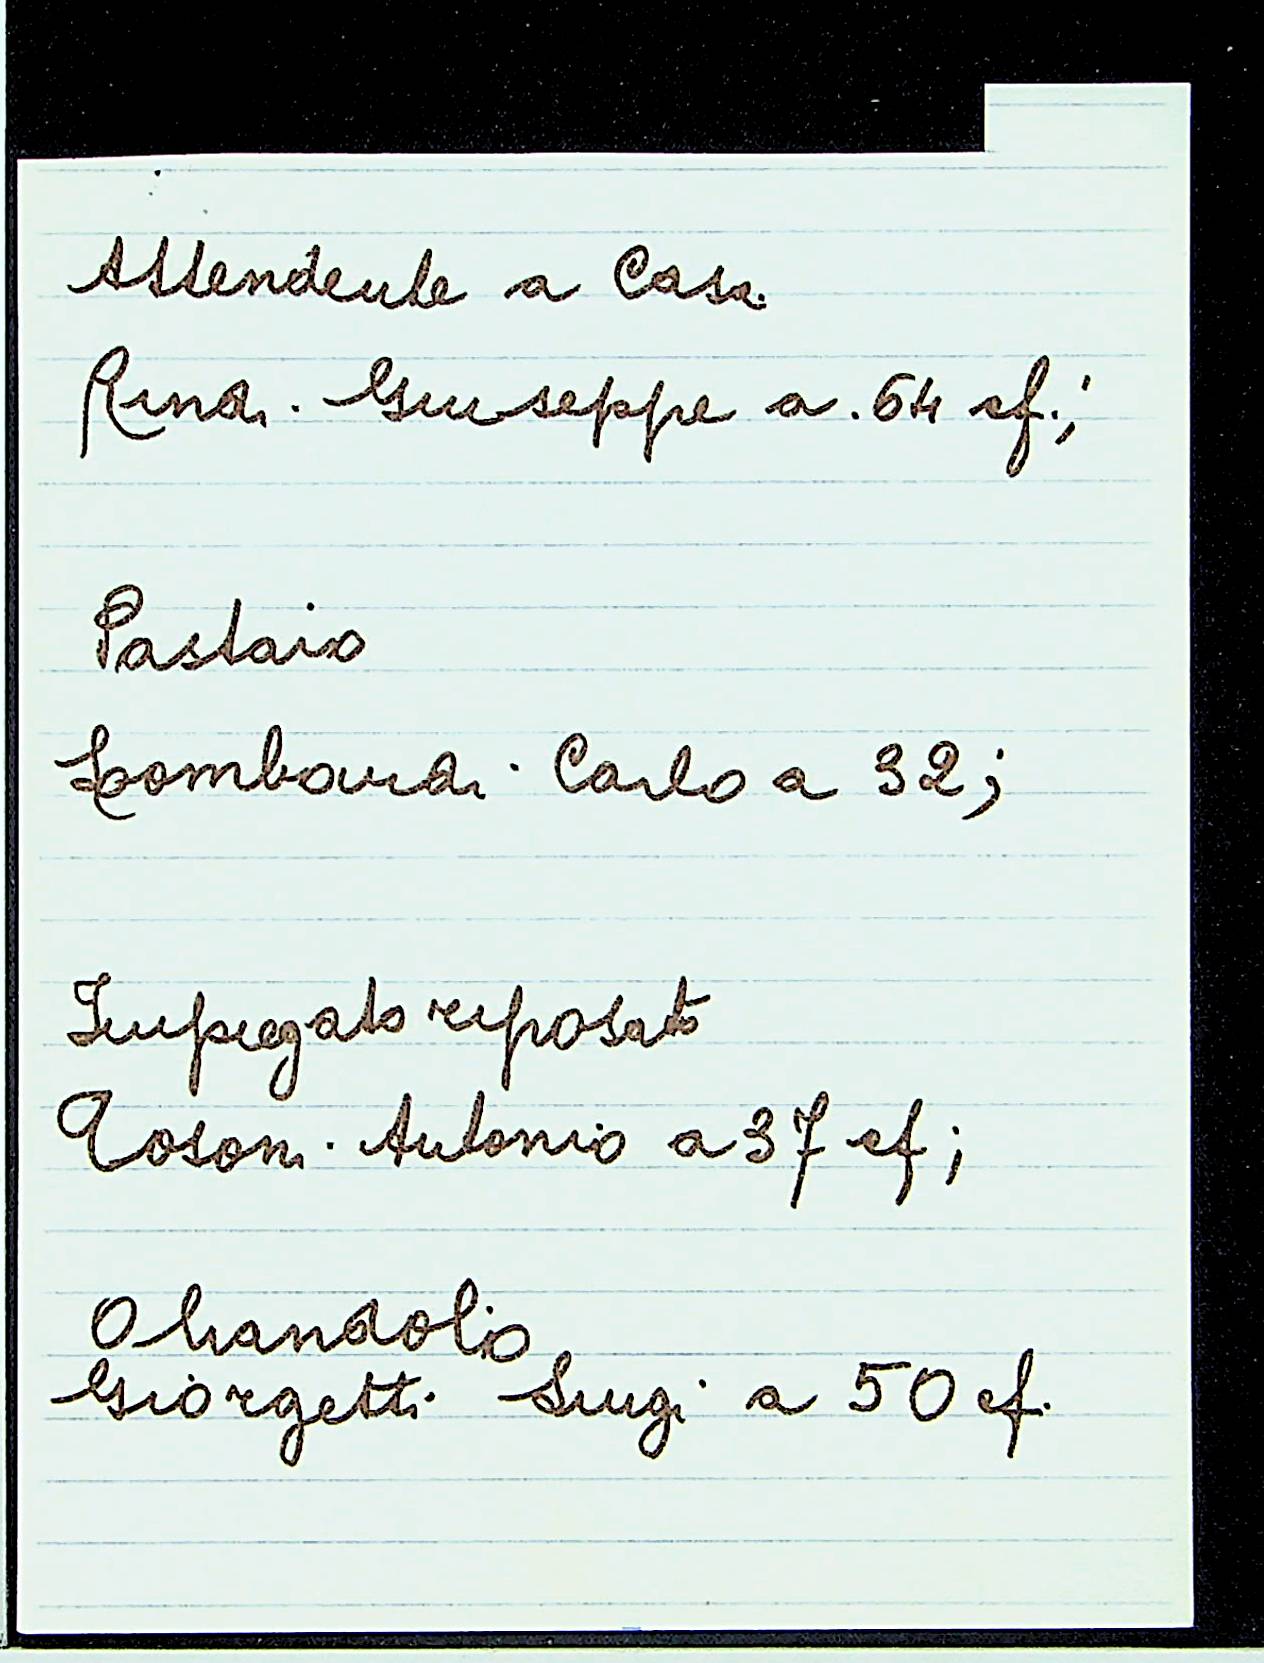 Attendente a Casa
Rindi Giuseppe a. 64 cf.;
Pastaio
Lombardi Carlo a 32;
Impiegato riposato
Tosoni Antonio a 37 cf;
Giorgetti Luigi a 50 cf.